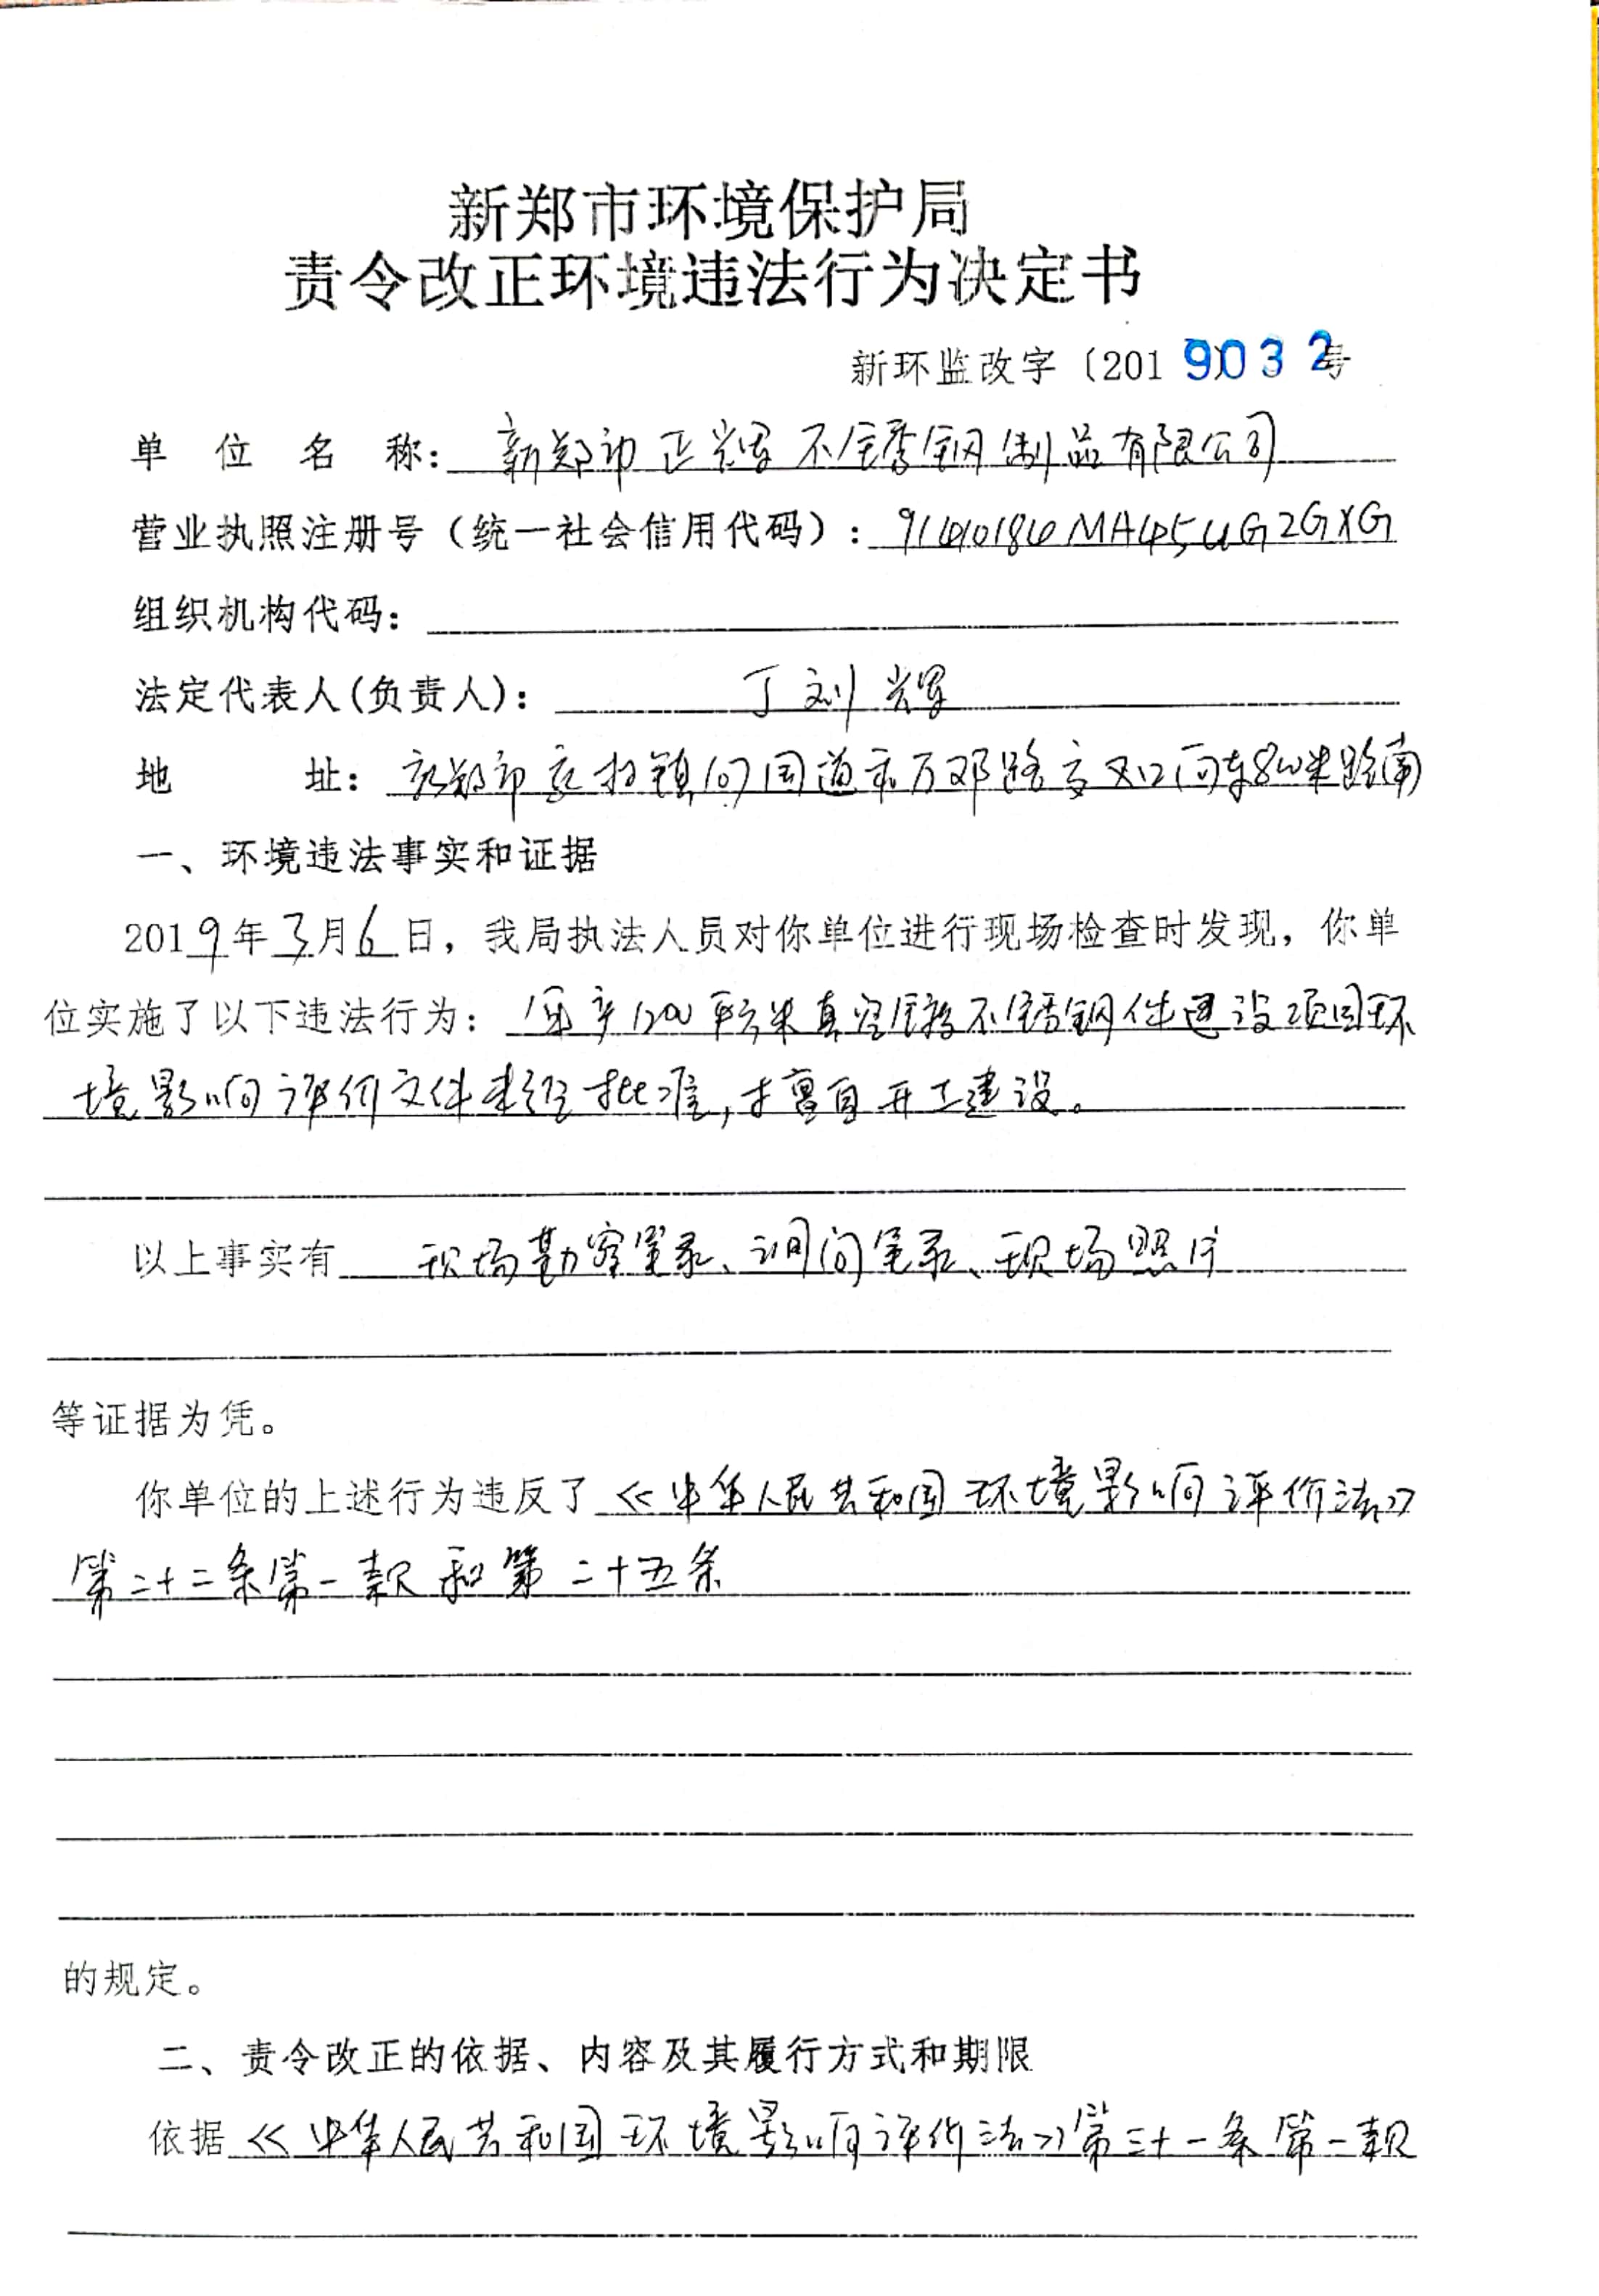 新郑市环境保护局
责令改正环境违法行为决定书
新环监改字〔2019〕032号
单位名称：新郑市正辉不锈钢制品有限公司
营业执照注册号（统一社会信用代码）：91410184MA454G2GXG
组织机构代码：
法定代表人(负责人)：丁刘辉
地址：新郑市镇107国道和万邓路交叉口向东800米路南
一、环境违法事实和证据
2019年3月6日，我局执法人员对你单位进行现场检查时发现，你单
位实施了以下违法行为：年产1200平方米真空镀不锈钢件建设项目环
境影响评价文件未经批准，擅自开工建设。
以上事实有现场勘察笔录、询问笔录、现场照片
等证据为凭。
你单位的上述行为违反了《中华人民共和国环境影响评价法》
第二十二条第一款和第二十五条
的规定。
二、责令改正的依据、内容及其履行方式和期限
依据《中华人民共和国环境影响评价法》第三十一条第一款